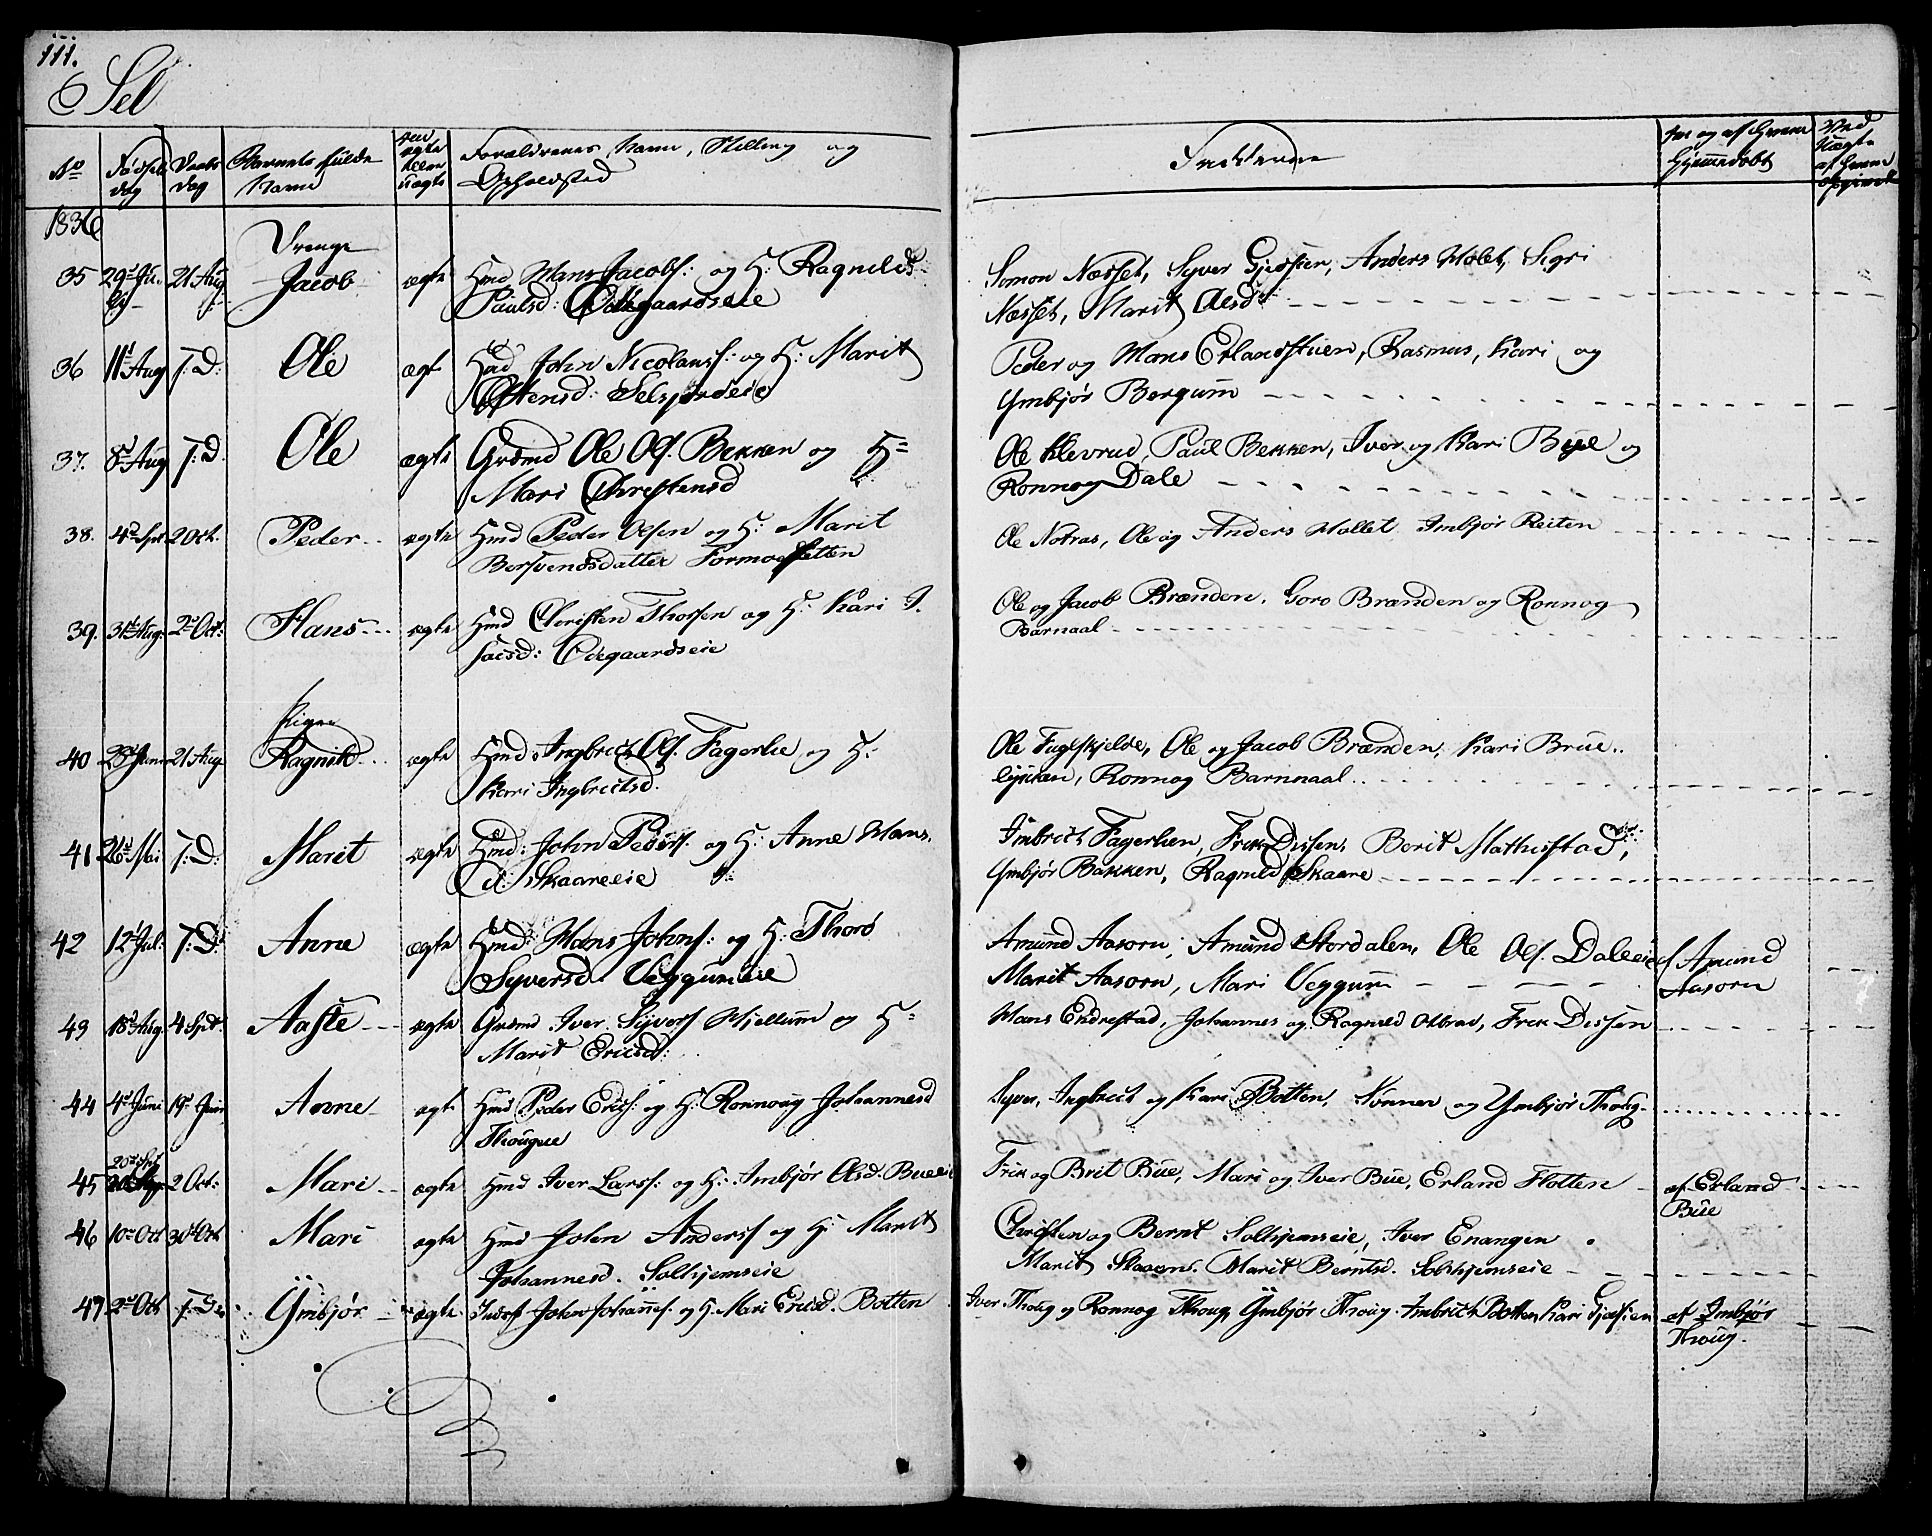 111.
Sel
No Fødsels dag Daabs dag Barnets fulde Navn om ægte eller uægte Forældrenes Navn, Stilling og Opholdsted Fadderne om og af hvem Hjemmedøbt
1836
Drenge
35 29de 21 Aug Jacob ægte Hmd Hans Jacobs: og H: Ragnild Paulsd: Odegaardseie
Simon Næsset, Syver Gjessien, Anders Molet, Sigri
Næsset, Marit Olsd:
36 11t Aug T: D: Ole ægte John Nicolaus: og H: Marit Ostensd: Selsjordeie
Peder og Hans Erlandstuen, Rasmus, Kari og
Ymbjør Bergum
37. 8t Aug T: D. Ole ægte Grdmd Ole Ols. Bekken og H: Mari Christensd
Ole Klevrud, Paul Bekken, Iver og Kari Bue og
Ronnog Dale
38. 4de Spt 2 Oct. Peder ægte Hmd Peder Olsen og H: Marit Bersvendsdatter Formoesletten
Ole Notras, Ole og Anders Mollet Imbjør Reiten
39. 31t Aug: 2de Oct: Hans ægte Hmd Christen Thorsen og H: Kari Isacsd: Odegaardseie
Ole og Jacob Brænden, Goro Brænden og Ronnog
Barnaal
Piger
40 21 Aug Ragnild ægte Hmd: Ingbricth Ols. Fagerlie og H: Kari Ingbrictsd.
Ole Fuglskjelde, Ole og Jacob Brænden, Kari Brue
Ronnog Barnnaal
41 26de Mai T: D: Marit ægte Hmd: John Peders. og H: Anne Hansd: Skaareeie
Imbrict Fagerlien, Frik Dissen, Berit Mathisstad,
Ymbjør Bakken, Ragnild Skaare
42 12t Jul: T: D: Anne ægte Hmd: Hans Johns: og H: Thoro Syversd. Veggumeie
Amund Aasorn, Amund Stordalen, Ole Ols. Daleeie af Amund
Marit Aasorn, Mari Veggum Aasorn
43 18t Aug. 4 Spt. Aaste ægte Grdmd Iver Syvers Hjellum og H: Marit Ericsd:
Hans Endrestad, Johannes og Ragnild Olbrad, Frik Dissen
44 4de Juni 19d Juni Anne ægte Hmd Peder Erics: og H: Ronnoug Johannesd Thougue
Syver, Ingbrict og Kari Botten, Simner og Ymbjør Thoug
45 20de Spt 2 Oct: Mari ægte Hmd Iver Larss: og H: Imbjør Olsd. Bueeie
Frik og Brit Bue, Mari og Iver Bue, Erland Flotten af Erland
Bue
46 10de Oct 30t Oct Mari ægte Hmd John Anderss og H: Marit Johannesd. Solhjemseie
Christen og Bernt Solhjemseie, Iver Enangen
Marit Slaaen. Marit Berntsd. Solhjemseie
47 2de Oct T: D Ymbjør ægte Inderst John Johannes: og H. Mari Ericsd. Botten
Iver Thoug og Ronnog Thoug, Ymbjør Thoug. Imbrict Botten, Kari Gjessien af Imbjør
Thoug.